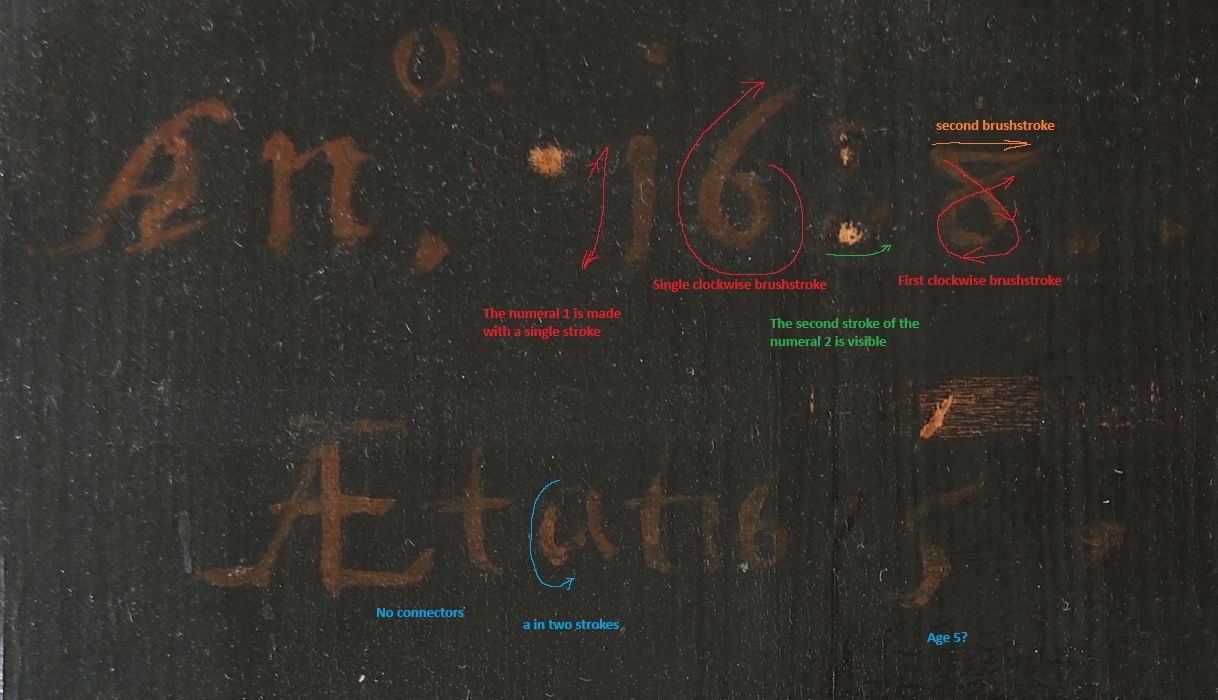 o
An. 16 8
second brushstroke
Single clockwise brushstroke
First clockwise brushstroke
The numeral 1 is made
with a single stroke
The second stroke of the
numeral 2 is visible
Ætatis 5
No connectors
a in two strokes
Age 5?